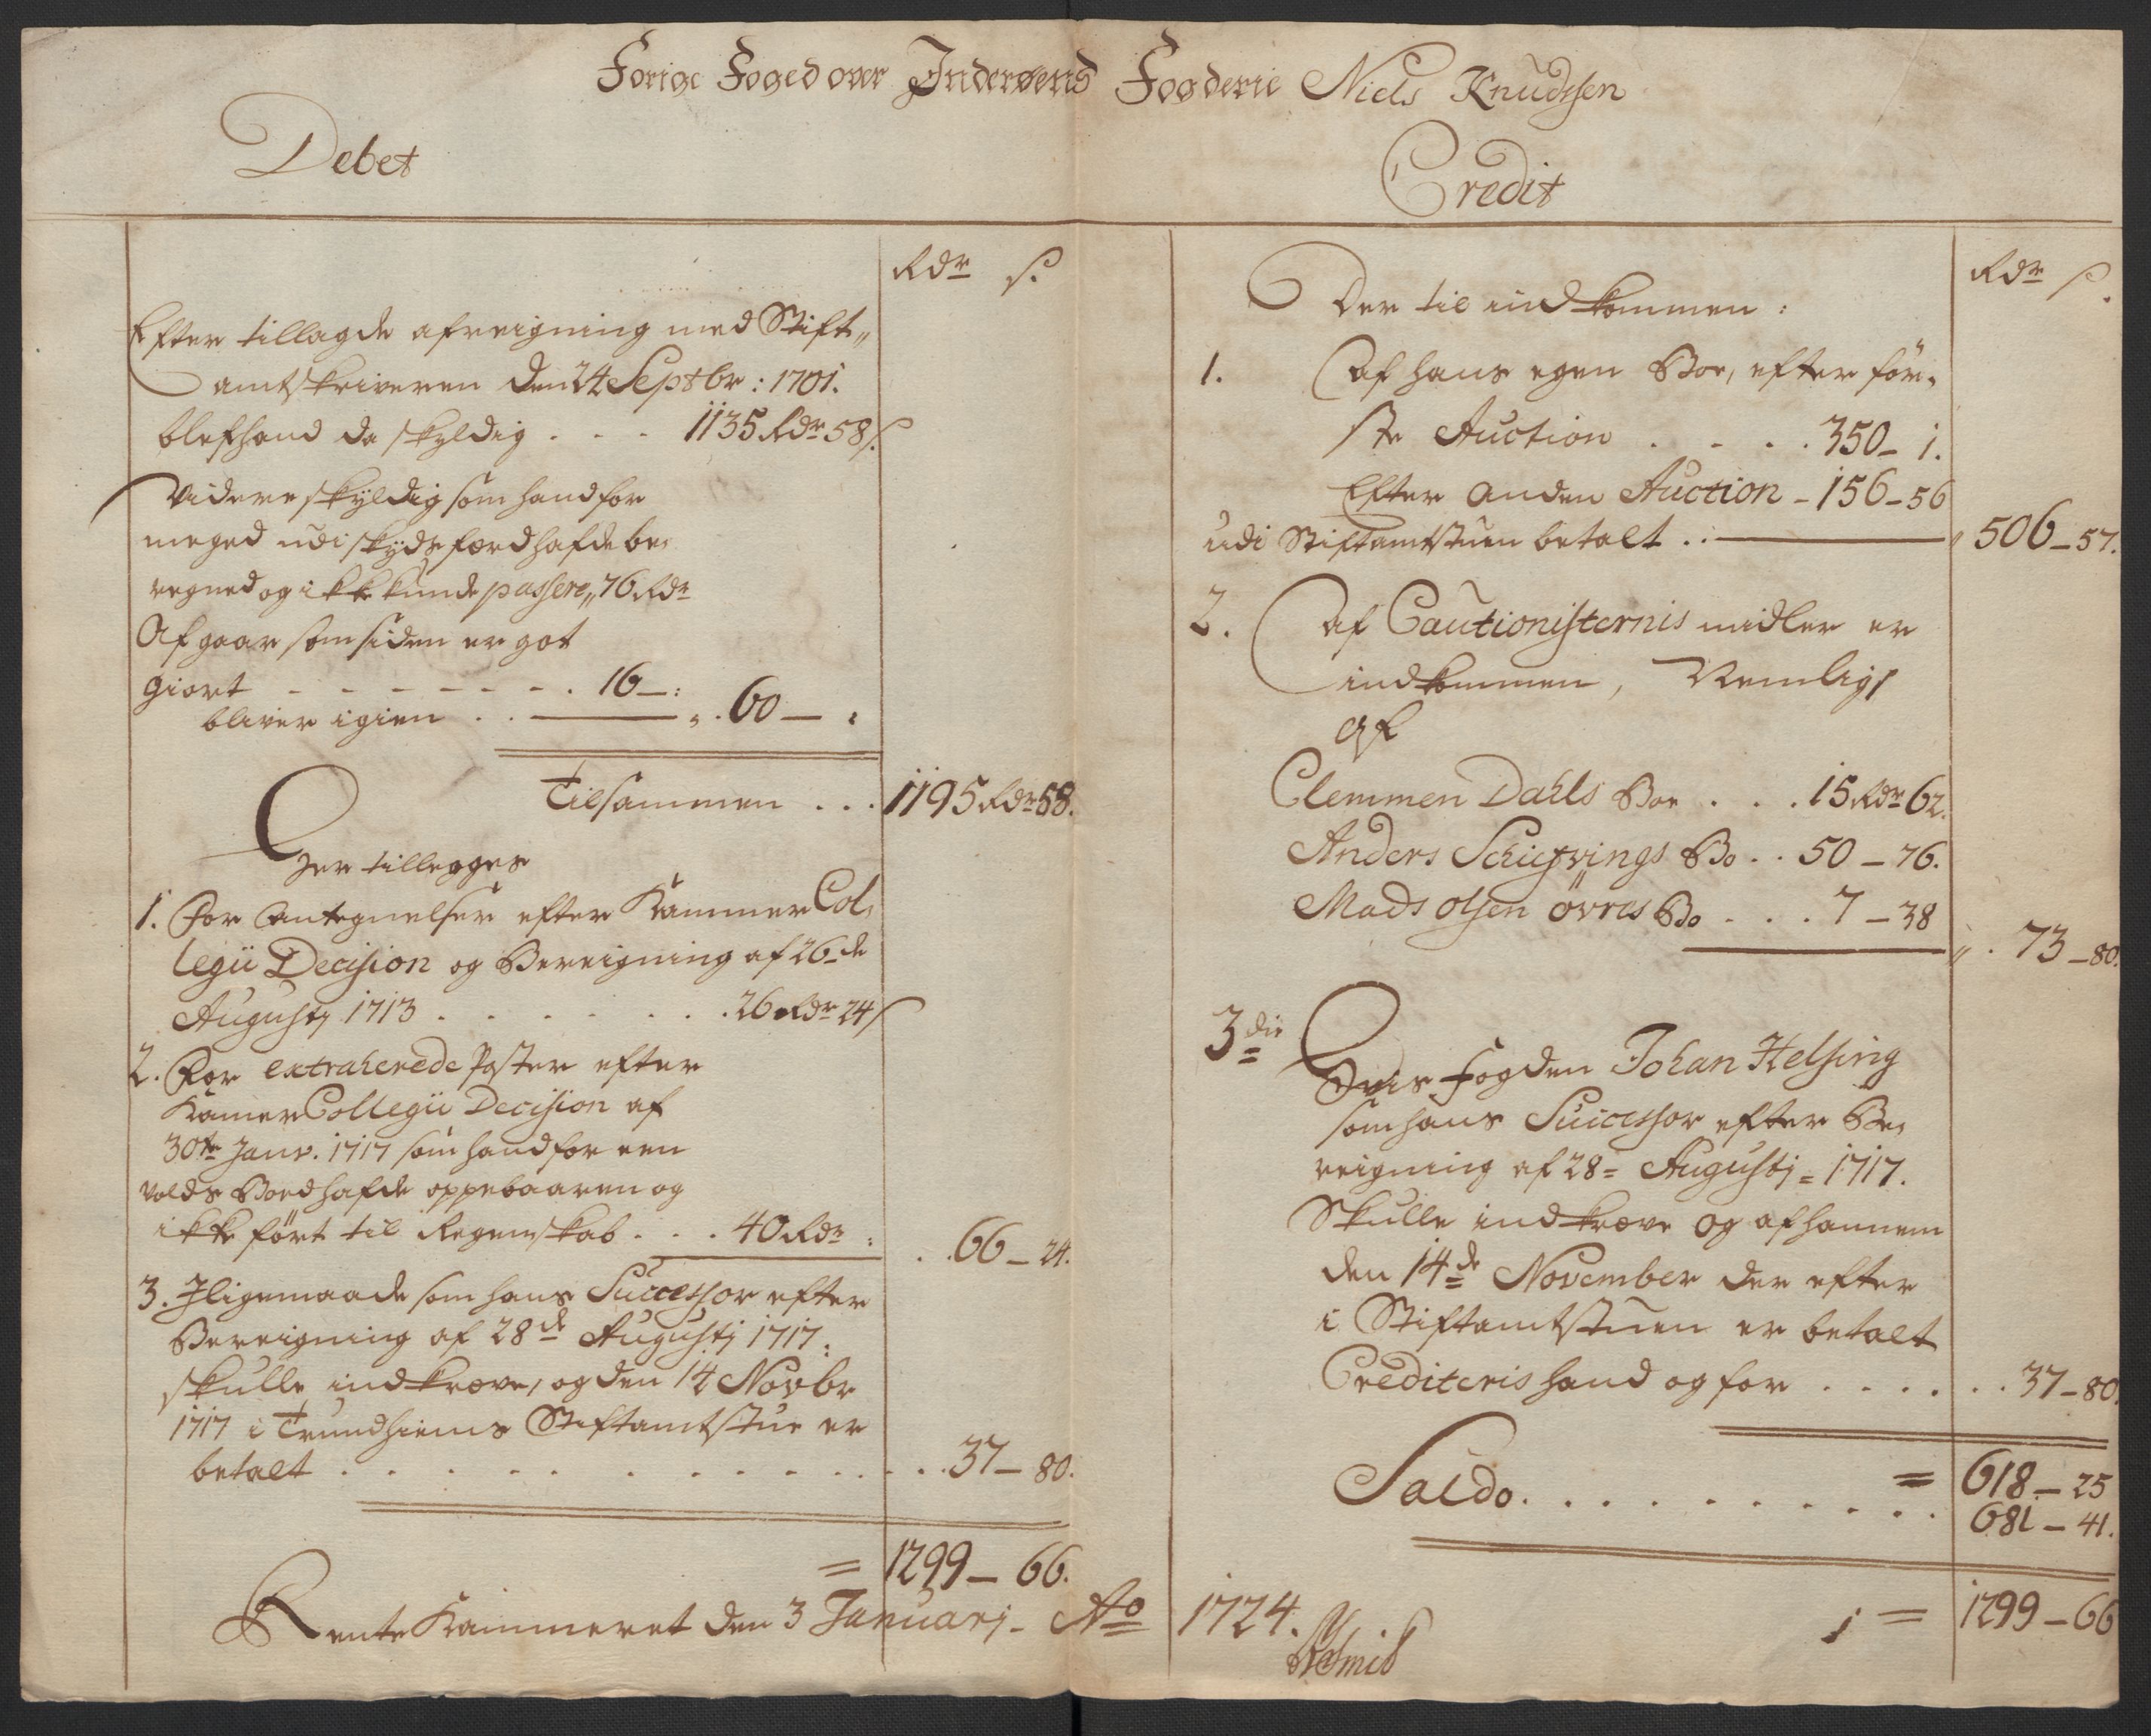 Forige Foged over Inderøens Fogderie Niels Knudssen
Debet
Rdr s.
Efter tillagde afreigning med Stift„
amtskriveren den 24 Septbr: 1701.
blef hand da skyldig . . . 1135 Rdr 58 s.
Videre skyldig som hand for
meged udi skydsferd hafde be„
regned og ikke kunde passere„ 76 Rdr
Afgaar som siden er got
giort - - - - - - . 16 – :
bliver igien . . — „ . 60 – „
Tilsammen . . . 1195 Rdr 58.
Her tillegges
1. For Antegnelser efter Kammer Col„
legii Decision og Bereigning af 26de
Augustj 1713 . . . . . . . 26 Rdr 24 s
2. For extraherede Poster efter
Kamer Collegii Decision af
30te Janv. 1717 som hand for een
volds Boed hafde oppebaaren og
ikke ført til Regenskab . . . 40 Rdr : . . 66 – 24.
3. Jligemaade som hans Successor efter
Bereigning af 28de Augustj 1717.
skulle indkræve, og den 14 Novbr
1717 i Trundhiems Stiftamtstue er
betalt . . . . . . . . . . . . . 37 – 80.
= 1299 – 66.
Rente Kammeret den 3 Januarj – Ao 1724.
Credit
Rdr s.
Der til indkommen :
1. Af hans egen Boe, efter før„
ste Auction . . . . 350 – 1.
Efter Anden Auction – 156 – 56
udi Stiftamtstuen betalt . : — „ 506 – 57.
2. Af Cautionisternis midler er
indkommen, Nemlig
Af
Clemmen Dahls Boe . . . 15 Rdr 62.
Anders Schiefvings Bo . . 50 – 76.
Mads olsen övres Bo . . . 7 – 38
„ . 73 – 80.
3die Hvis Fogden Johan Helsing
som hans Successor efter Be„
reigning af 28= Augustj = 1717.
Skulle indkræve og af hannem
den 14de November der efter
i Stiftamtstuen er betalt
Crediteris hand og for . . . . . . . 37 – 80.
= 618 – 25
Saldo . . . . . . . . . . 681 – 41.
= 1299 – 66